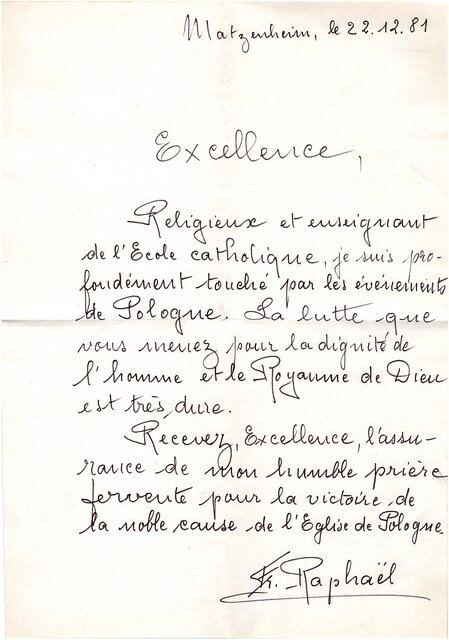 Matzenheim, le 22.12.81
Excellence,
Religieux et enseignant
de l'Ecole catholique, je suis pro-
fondément touché par les événements
de Pologne. La lutte que
vous menez pour la dignité de
l'homme et le Royaume de Dieu
est très dure.
Recevez, Excellence, l'assu-
rance de mon humble prière
fervente pour la victoire de
la noble cause de l'Eglise de Pologne.
Fr. Raphaël